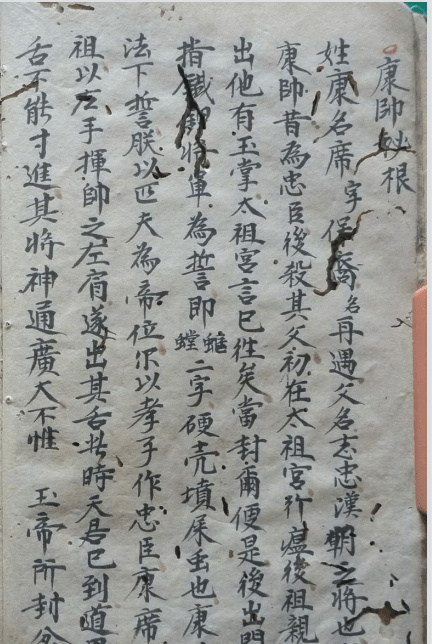 康帥妙根
姓康名席字保裔名再遇父名志忠漢朝之將也
康帥昔為忠臣後殺其父初在太祖宮行瘟後祖親
出他有玉掌太祖宮言巳徃矣當封爾便是後出
指鐵 將軍為誓即 二字硬壳墳屎虫也康
法下誓朕以匹夫為帝位尔以孝子作忠臣康席
祖以左手揮帥之左肩遂出其舌此時天君巳到道
舌不能寸進其將神通廣大不惟 玉帝所封